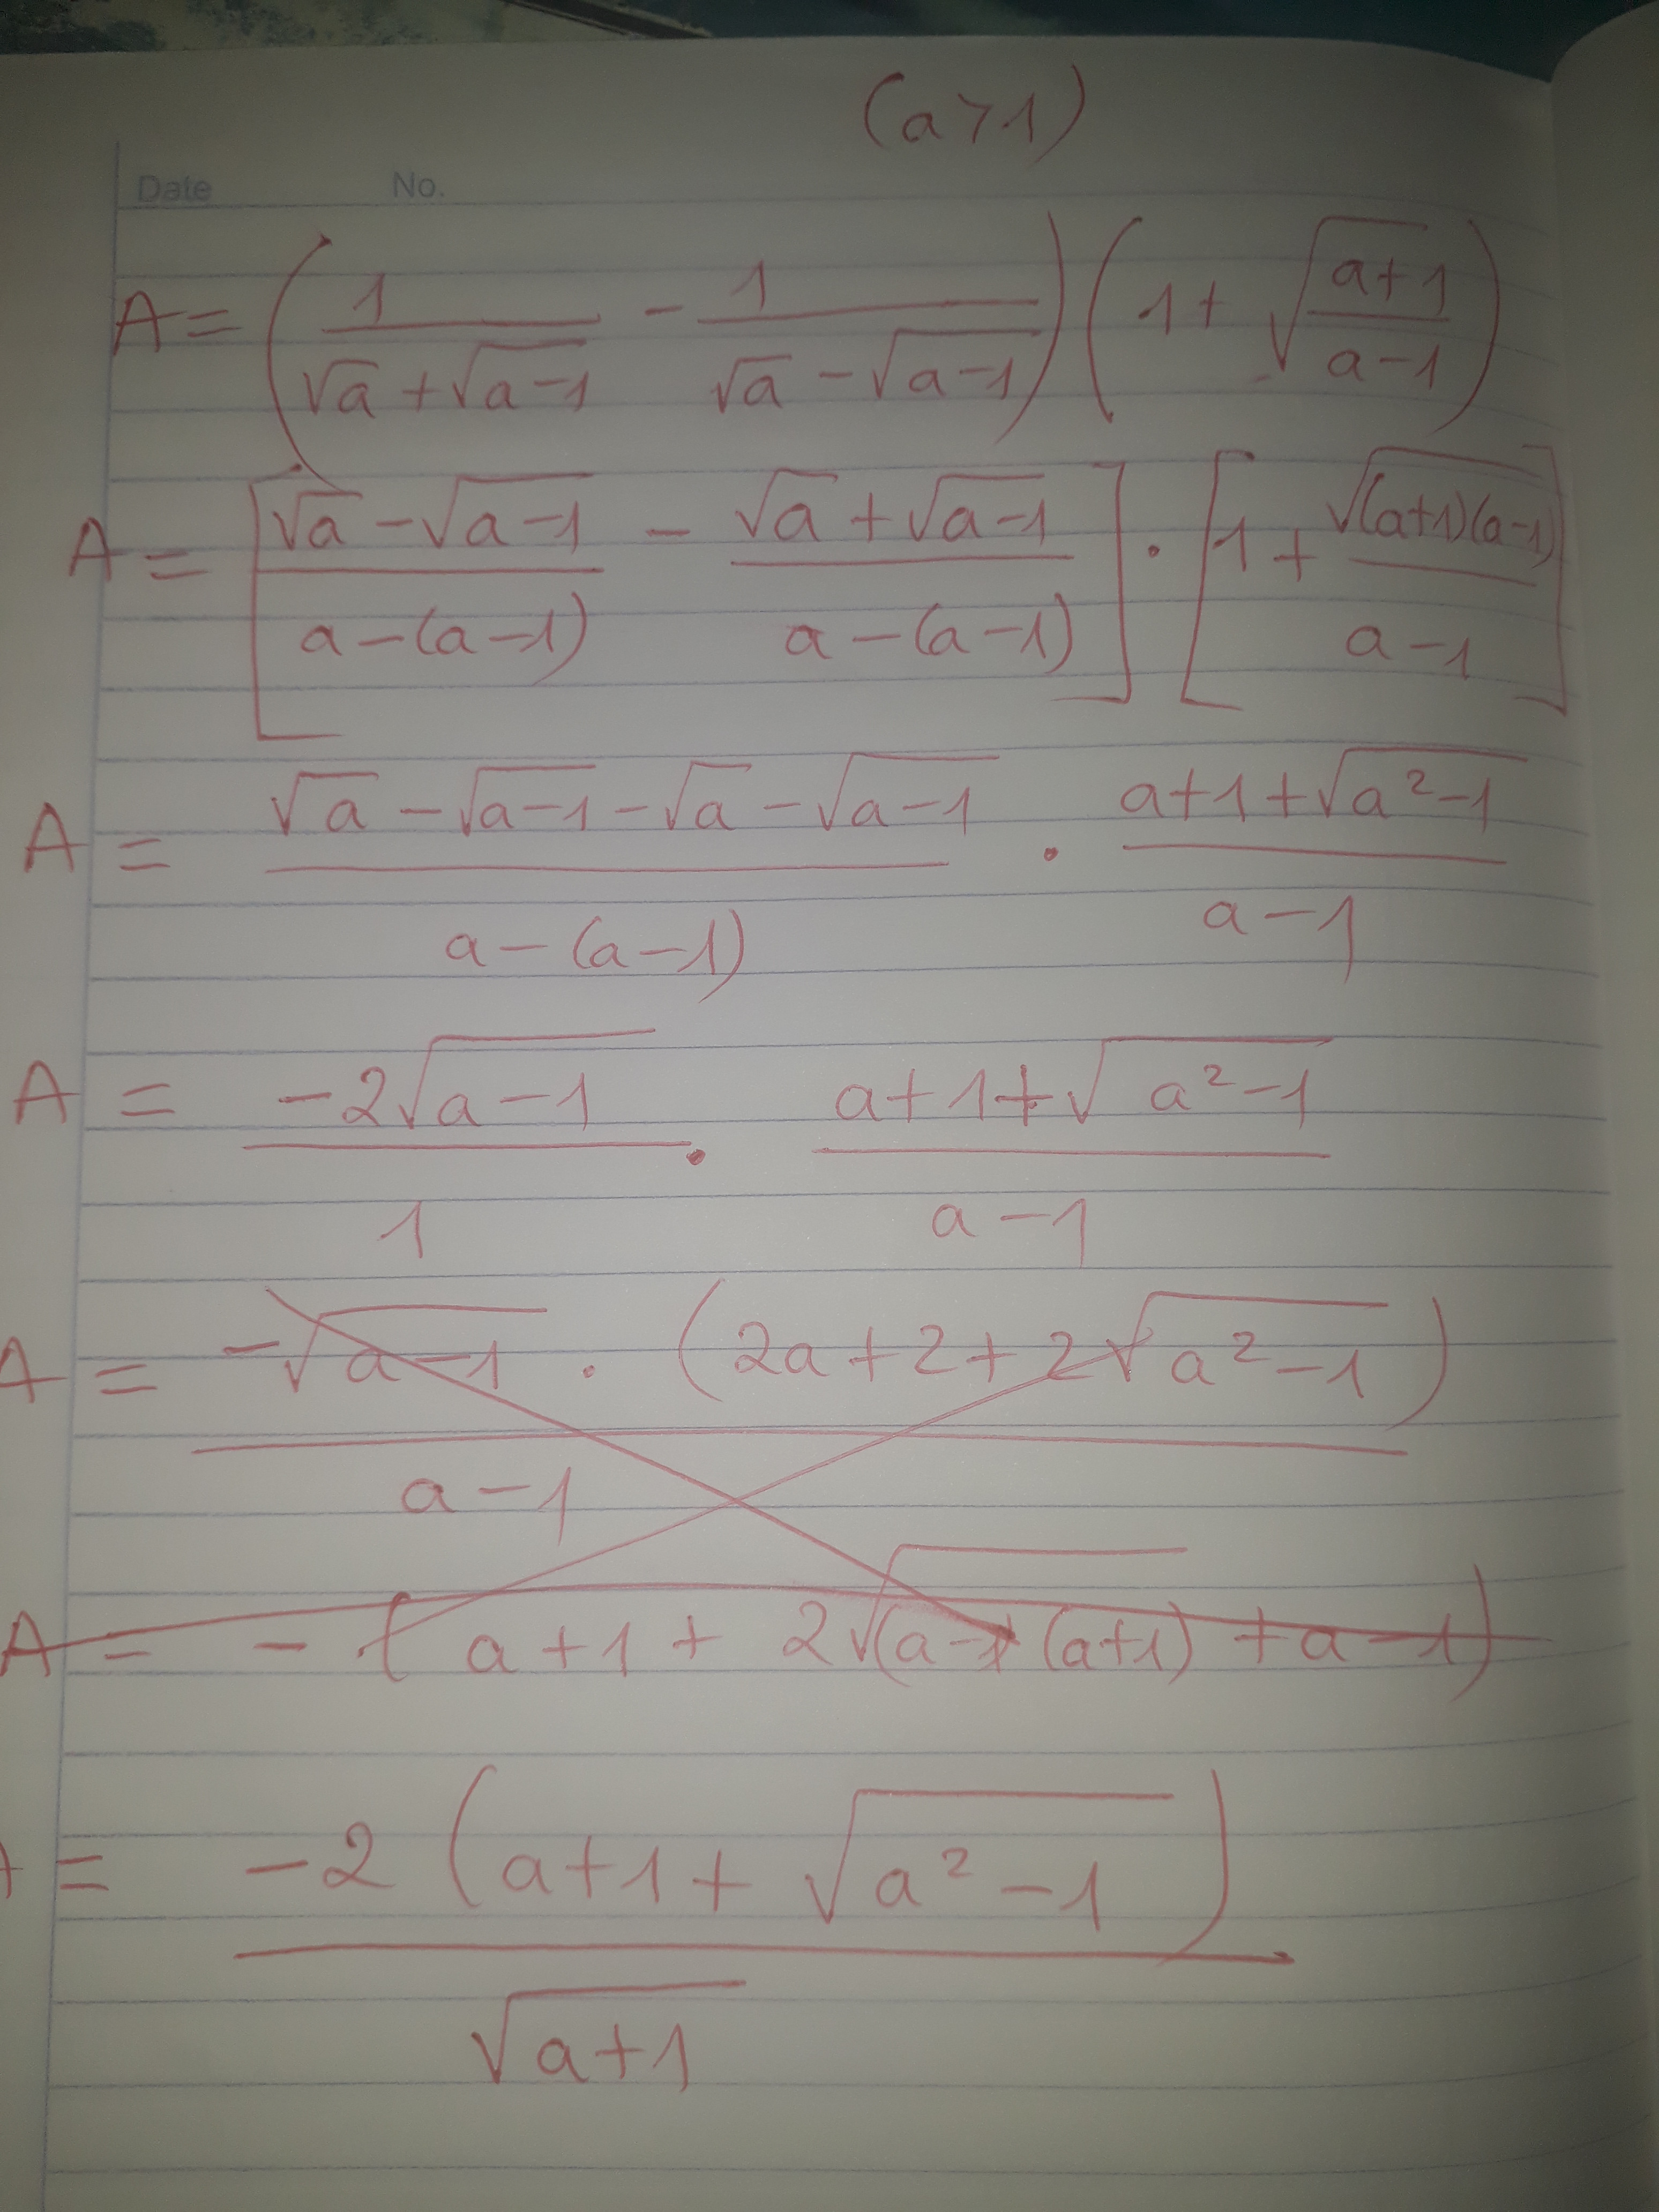 (a>1)
Date No.
A = (1/(√a + √(a-1)) - 1/(√a - √(a-1))) (1 + √((a+1)/(a-1)))
A = [(√a - √(a-1))/(a-(a-1)) - (√a + √(a-1))/(a-(a-1))] · [1 + √((a+1)(a-1))/(a-1)]
A = (√a - √(a-1) - √a - √(a-1))/(a-(a-1)) · (a+1+√(a²-1))/(a-1)
A = (-2√(a-1))/1 · (a+1+√(a²-1))/(a-1)
A = (-√(a-1) · (2a+2+2√(a²-1)))/(a-1)
A = - (a+1 + 2√((a-1)(a+1)) + a-1)
A = (-2(a+1+√(a²-1)))/√(a+1)